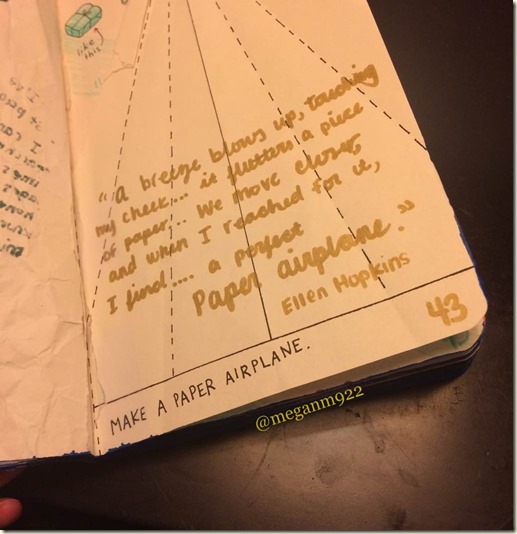 like
this
"A breeze blows up, touching
my cheek... it flutters a piece
of paper... We move closer,
and when I reached for it,
I find .... a perfect
Paper airplane."
Ellen Hopkins
43
MAKE A PAPER AIRPLANE.
@meganm922